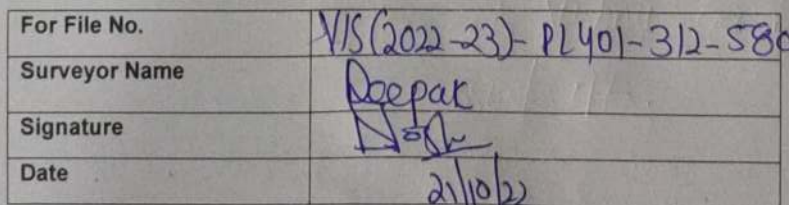 For File No. VIS(2022-23)-PL401-312-580
Surveyor Name Deepak
Signature
Date 21/10/22